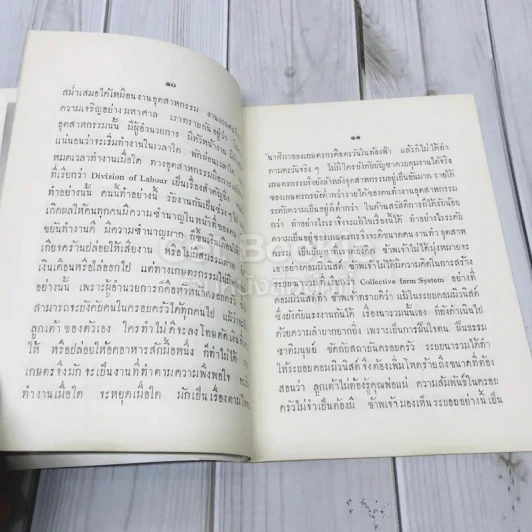 ๑๐
สม่ำเสมอได้เหมือนงานอุตสาหกรรม งานเกษตร
ความเจริญอย่างมหาศาล เราทราบกันอยู่
อุตสาหกรรมนั้น มีผู้อำนวยการ มีหัวหน้างาน
แน่นอนว่าจะเริ่มทำงานในเวลาใด พักผ่อนเวลาใด
หมดเวลาทำงานเมื่อใด ทางอุตสาหกรรม
ที่เรียกว่า Division of Labour เป็นเรื่องสำคัญยิ่ง
ทำอย่างนั้น คนนี้ทำอย่างนี้ รับงานกันเป็นช่วง ๆ
เกิดผลให้คนทุกคนมีความชำนาญในหน้าที่ของ
ขยันทำงานดี มีความชำนาญมาก
เกียจคร้านปล่อยให้เสียงาน หรือไม่สมประกอบ
เงินเดือนหรือไล่ออกไป แต่ทางเกษตรกรรม
อย่างนั้น เพราะผู้อำนวยการก็คือหัวหน้าครอบครัว
สามารถจะบังคับคนในครอบครัวได้ทุกคนไป
ลูกเต้า ของตัวเอง ใครทำไม่ดีจะลงโทษตัดเงิน
ให้ หรือปล่อยให้อดอาหารสักมื้อหนึ่ง ก็ทำไม่ได้
เกษตรจึงมักจะเป็นงานที่ทำตามความพึงพอใจ
ทำงานเมื่อใด จะหยุดเมื่อใด มักเป็นเรื่องตามใจ
๑๑
นาฬิกาของเกษตรกรคือตะวันในท้องฟ้า แล้วก็ไม่ได้ทำ
ตามตะวันจริง ๆ ไม่มีใครบังคับบัญชาควบคุมงานได้จริง
เกษตรกรรมจึงยังล้าหลังอุตสาหกรรมอยู่เป็นอันมาก รายได้
ของเกษตรกรยังต่ำกว่ารายได้ของคนทำงานอุตสาหกรรม
ระดับความเป็นอยู่ก็ต่ำกว่า ในด้านสวัสดิการก็ได้รับน้อย
กว่า ทำอย่างไรเราจึงจะแก้ไขเรื่องนี้ได้ ทำอย่างไรระดับ
ความเป็นอยู่ของเกษตรกรจึงจะดีขนาดคนงานทำ อุตสาห
กรรม เป็นปัญหา
เอาอย่างคอมมิวนิสต์ ข้าพเจ้าไม่ได้มีความคิดในการสร้าง
ระบบนารวม ที่เรียกว่า Collective farm System อย่างที่
คอมมิวนิสต์ทำ ข้าพเจ้าทราบดีว่า แม้ในระบบคอมมิวนิสต์
ซึ่งบังคับแรงงานกันได้ เรื่องนารวมนั้นเอง ก็ดำเนินไป
ด้วยความลำบากยากยิ่ง เพราะเป็นการฝืนใจคน ฝืนธรรม
ชาติมนุษย์ ขัดกับสถาบันครอบครัว ระบบนารวมได้ทำ
ให้ระบอบคอมมิวนิสต์ จึงต้องเพิ่มโหดร้ายถึงขนาดที่ต้อง
สอนว่า ลูกเต้าไม่ต้องรู้คุณพ่อแม่ ความสัมพันธ์ในครอบ
ครัวไม่จำเป็นต้องมี ข้าพเจ้ามองเห็นระบอบอย่างนี้เป็น